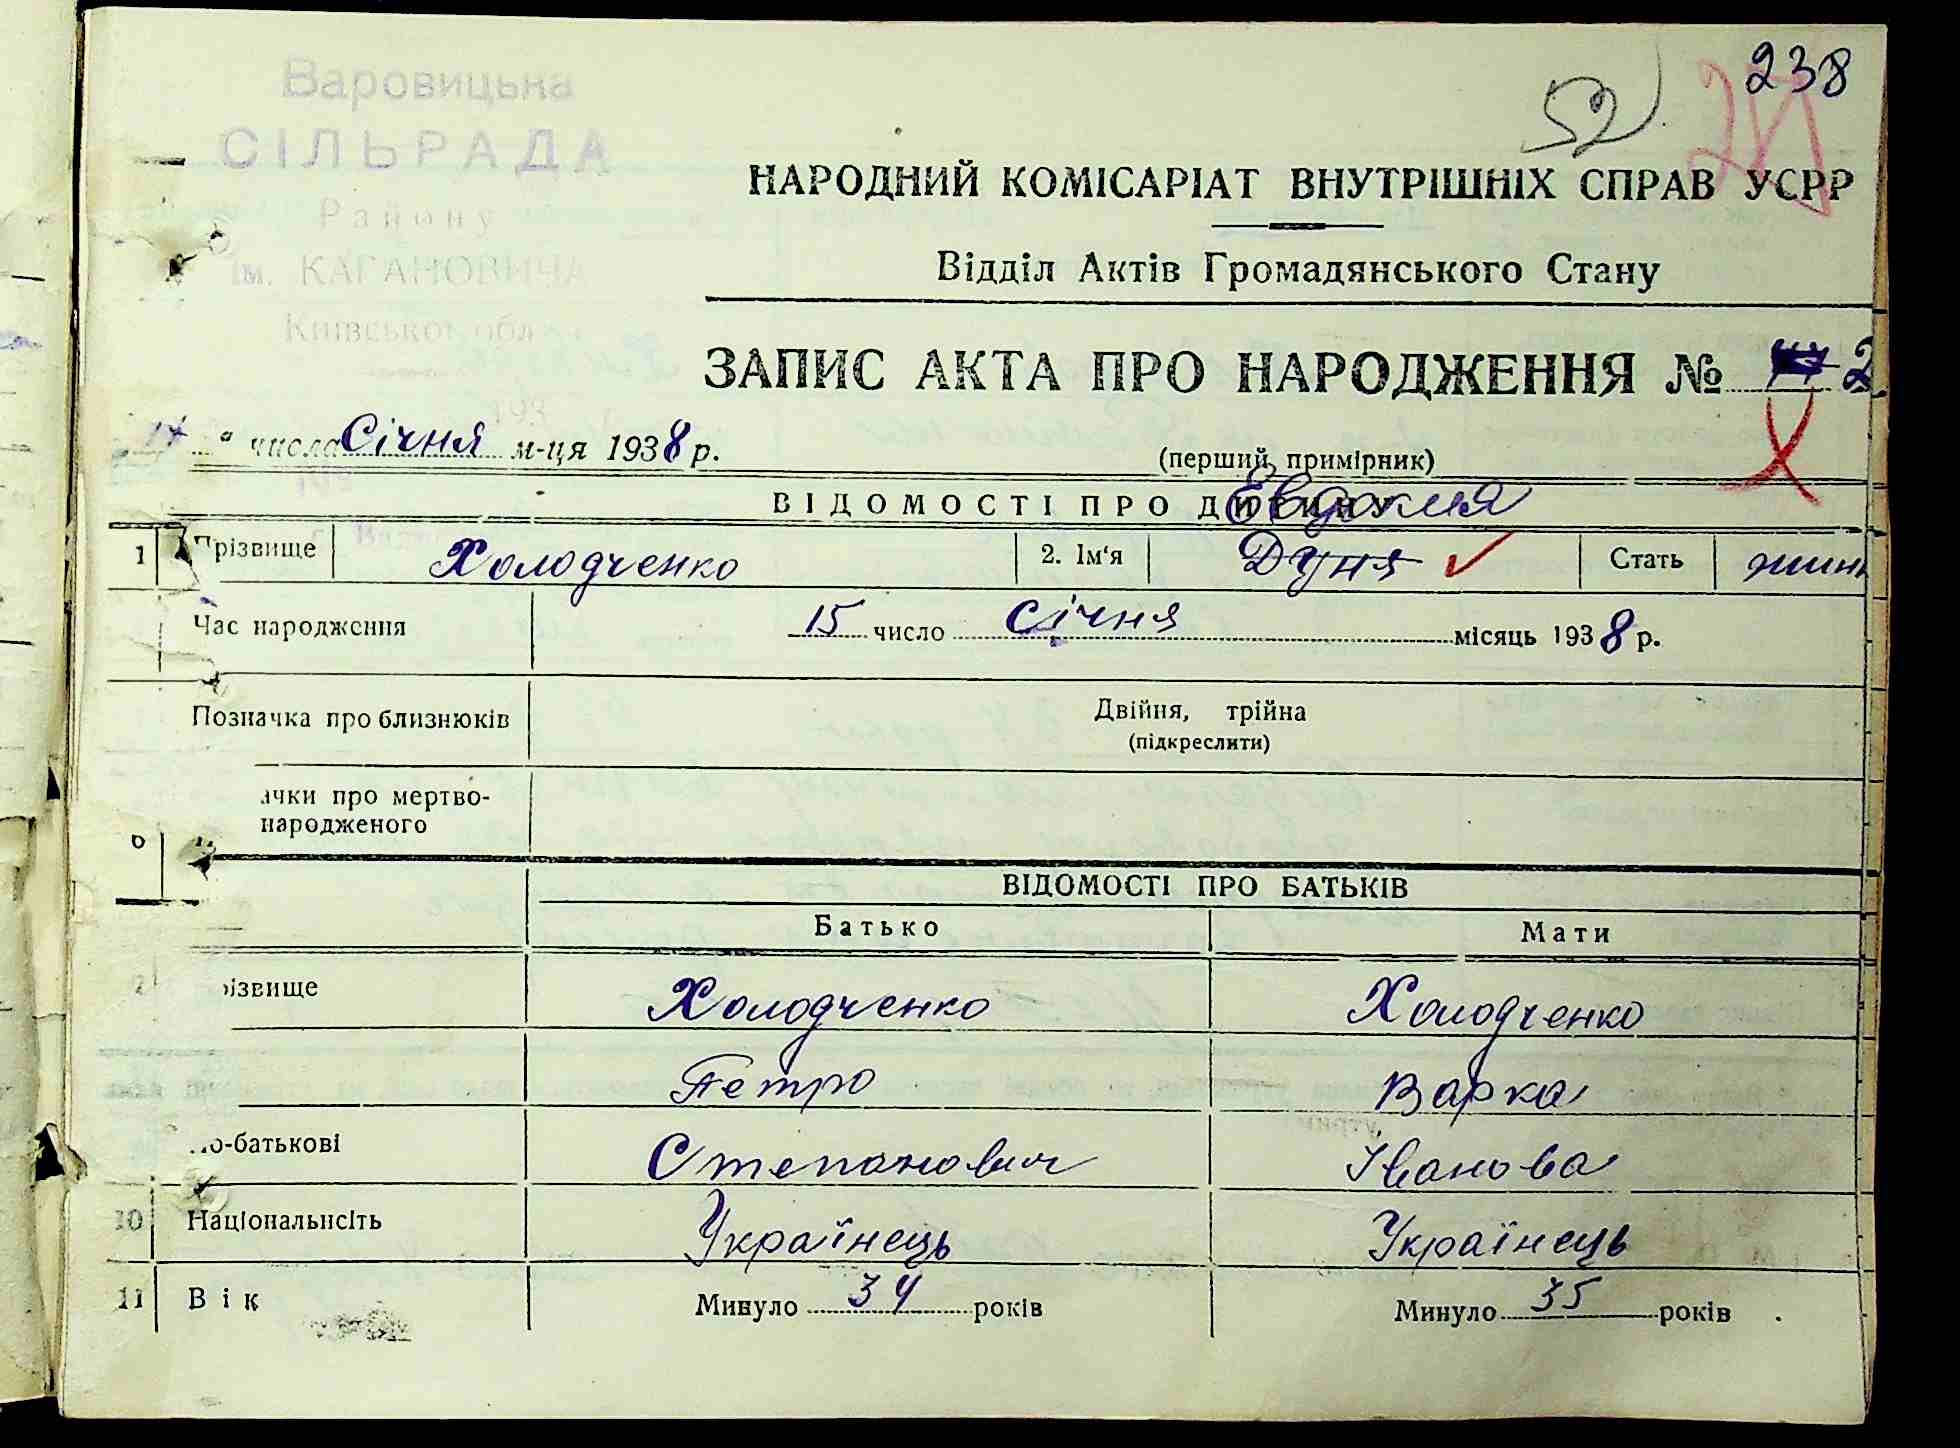 238
52
Варовицька
СІЛЬРАДА
Району
ім. КАГАНОВИЧА
Київської обл
НАРОДНИЙ КОМІСАРІАТ ВНУТРІШНІХ СПРАВ УСРР
Відділ Актів Громадянського Стану
ЗАПИС АКТА ПРО НАРОДЖЕННЯ № 2
17 " числа Січня м-ця 1938 р.
(перший примірник)
ВІДОМОСТІ ПРО ДИТИНУ
Євдокия
1 Прізвище Холодченко 2. Ім'я Дуня Стать жинк
Час народження 15 число Січня місяць 1938 р.
Позначка про близнюків Двійня, трійна
(підкреслити)
ачки про мертво-
народженого
6
ВІДОМОСТІ ПРО БАТЬКІВ
Батько Мати
різвище Холодченко Холодченко
Петро Варка
по-батькові Степанович Іванова
10 Національність Українець Українець
11 Вік Минуло 34 років Минуло 35 років